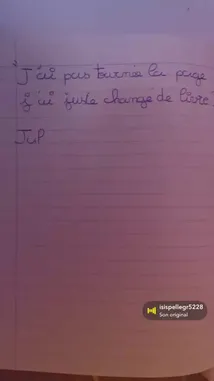 J'ai pas tourner la page
j'ai juste changé de livre
JuP
isispellegr5228
Son original